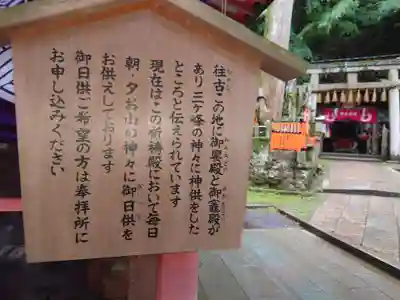 往古この地に御饗殿と御竈殿が
あり三ヶ峰の神々に神供をした
ところと伝えられています
現在はこの祈祷殿において毎日
朝・夕お山の神々に御日供を
お供えしております
御日供ご希望の方は奉拝所に
お申し込みください